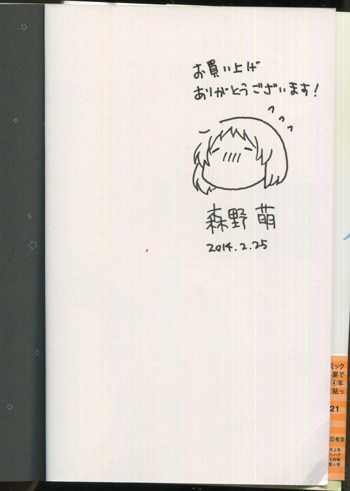 お買い上げ
ありがとうございます!
森野 萌
2014.2.25
21